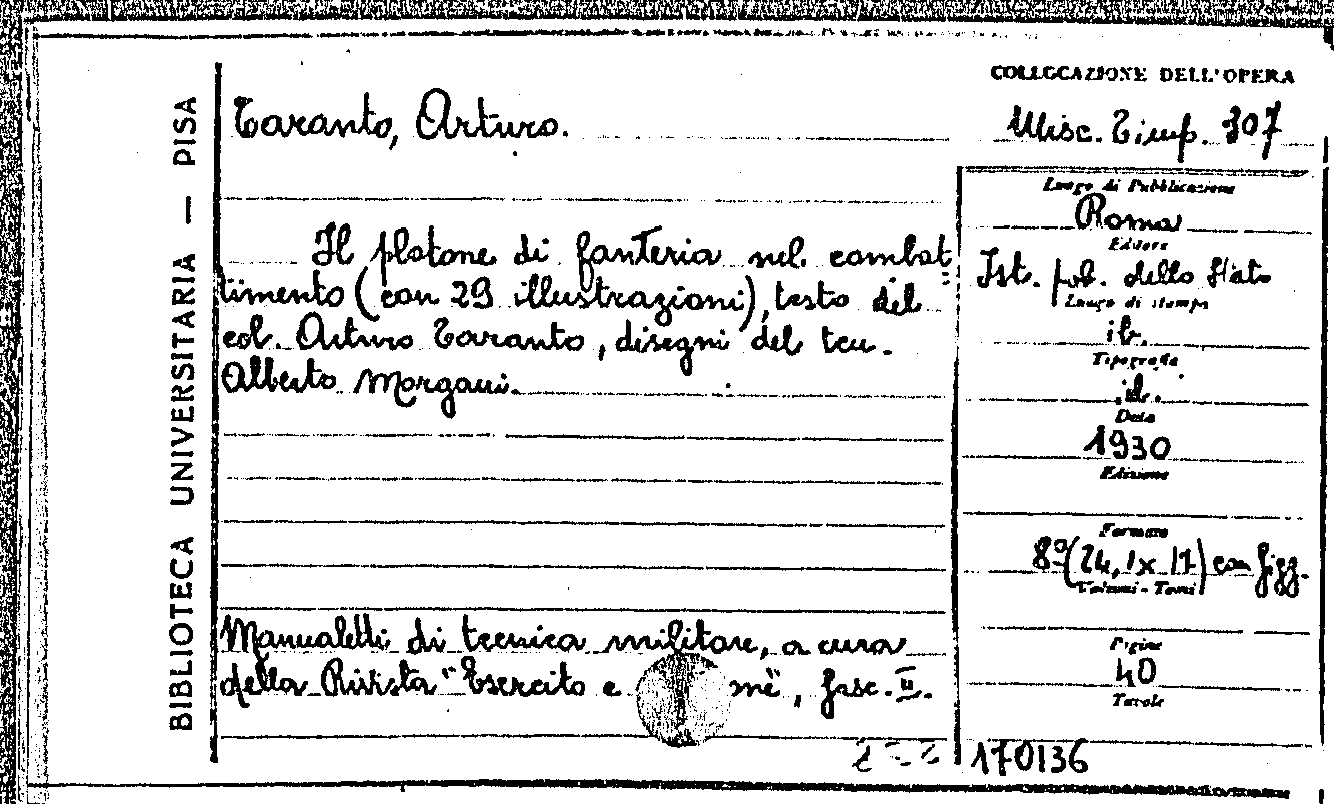 BIBLIOTECA UNIVERSITARIA — PISA
COLLOCAZIONE DELL'OPERA
Taranto, Arturo.
Misc. Timp. 307
Il plotone di fanteria nel combat
timento (con 29 illustrazioni), testo del
col. Arturo Taranto, disegni del ten.
Alberto Morgani.
Manualetti di tecnica militare, a cura
della Rivista "Esercito e
", fasc. II.
Luogo di Pubblicazione
Roma
Editore
Ist. pol. dello Stato
Luogo di stampa
ib.
Tipografia
id.
Data
1930
Edizione
Formato
8º (24,1x17) con figg.
Volumi - Tomi
Pagine
40
Tavole
170136